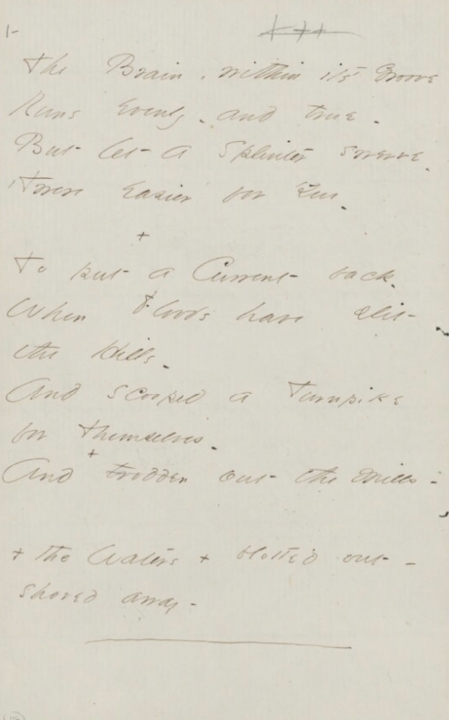 The Brain, within its Groove
Runs evenly - and true -
But let a Splinter swerve -
'Twere easier for You -
+
To put a Current back -
When Floods have slit
the Hills -
And scooped a Turnpike
for Themselves -
+
And trodden out the Mills -
+ the Waters + blotted out -
shoved away -